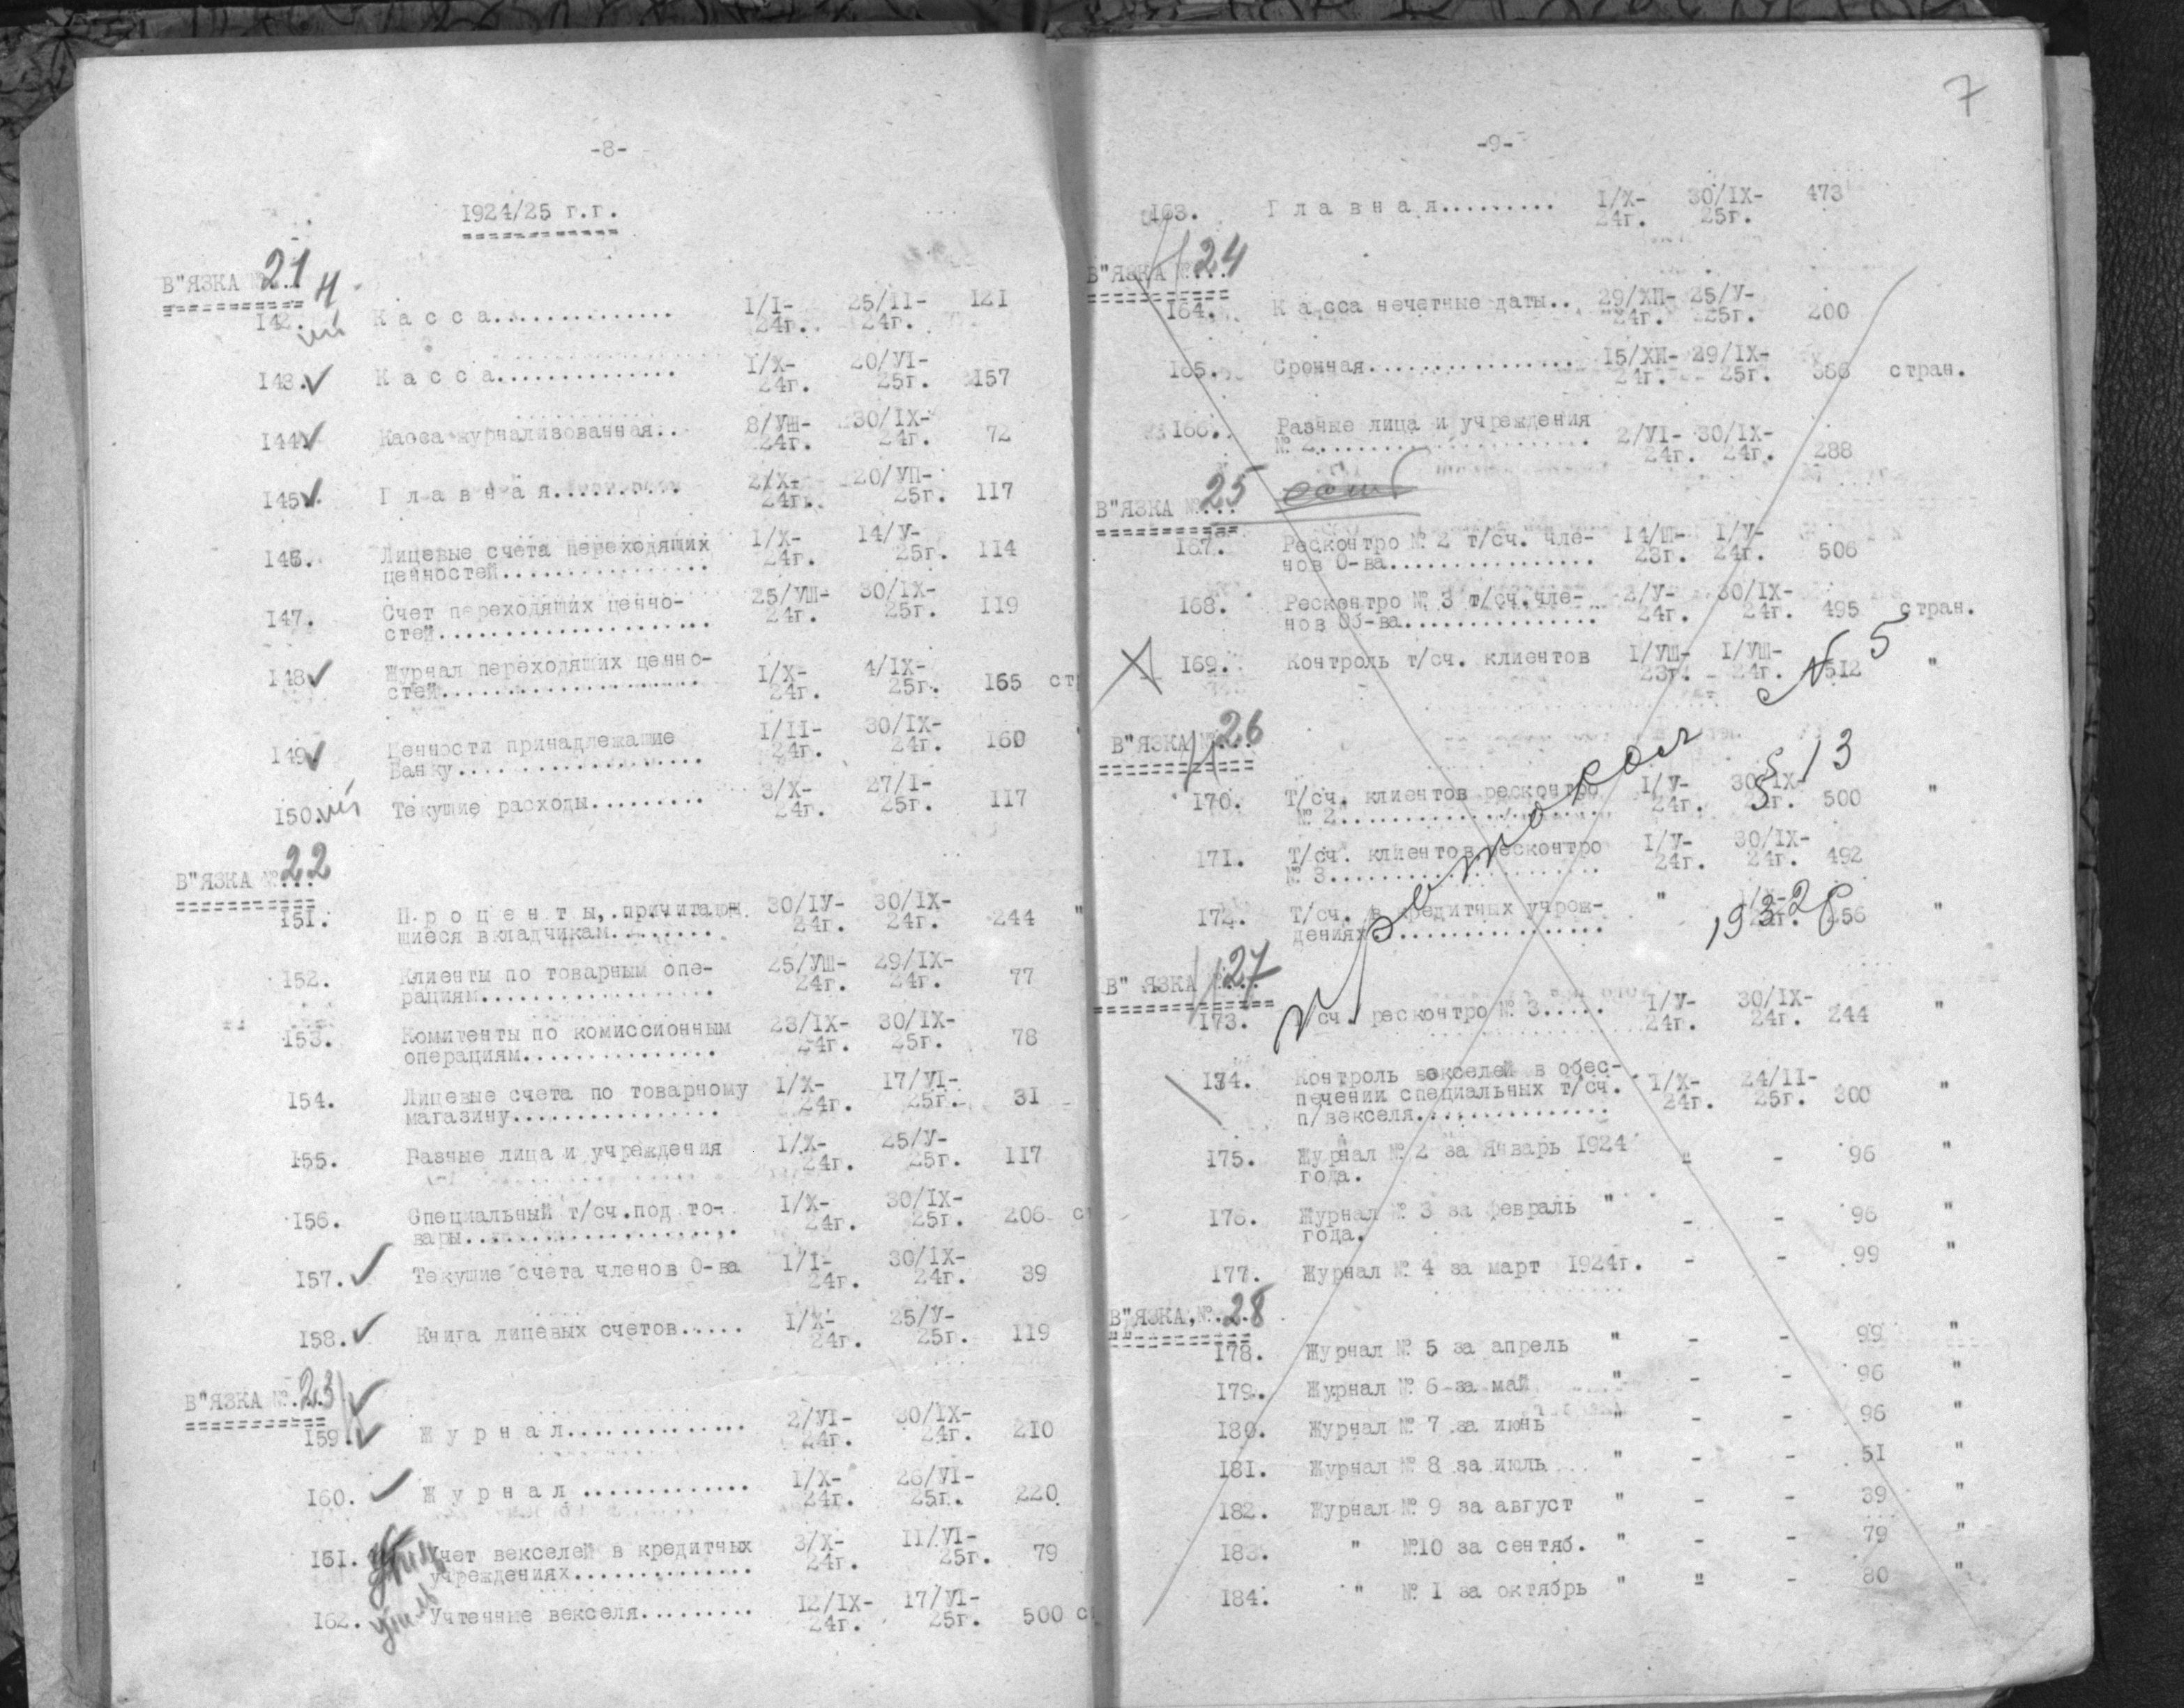 -8-
1924/25 г.г.
В"ЯЗКА № 21
142. К а с с а.............. 1/I- 25/II- 121
24г. 24г.
143. К а с с а.............. 1/X- 20/УI- 157
24г. 25г.
144. Касса журнализованная.. 8/УШ- 30/IX- 72
24г. 24г.
145. Г л а в н а я.......... 2/X- 20/УП- 117
24г. 25г.
146. Лицевые счета переходящих 1/X- 14/У- 114
ценностей................ 24г. 25г.
147. Счет переходящих ценно- 25/УШ- 30/IX- 119
стей..................... 24г. 25г.
148. Журнал переходящих ценно- 1/X- 4/IX- 165 ст
стей.................... 24г. 25г.
149. Ценности принадлежащие 1/II- 30/IX- 160
Банку................... 24г. 24г.
150. Текущие расходы......... 3/X- 27/I- 117
24г. 25г.
В"ЯЗКА № 22
151. П р о ц е н т ы, причитаю 30/IУ- 30/IX- 244 "
щиеся вкладчикам........ 24г. 24г.
152. Клиенты по товарным опе- 25/УШ- 29/IX- 77
рациям.................. 24г. 24г.
153. Комитенты по комиссионным 23/IX- 30/IX- 78
операциям............... 24г. 25г.
154. Лицевые счета по товарному 1/X- 17/УI- 31
магазину................ 24г. 25г.
155. Разные лица и учреждения 1/X- 25/У- 117
24г. 25г.
156. Специальный т/сч.под то- 1/X- 30/IX- 206 с
вары..................... 24г. 25г.
157. Текущие счета членов О-ва 1/I- 30/IX- 39
24г. 24г.
158. Книга лицевых счетов..... 1/X- 25/У- 119
24г. 25г.
В"ЯЗКА № 23
159. Ж у р н а л.............. 2/УI- 30/IX- 210
24г. 24г.
160. Ж у р н а л ............. 1/X- 26/УI- 220
24г. 25г.
161. Учет векселей в кредитных 3/X- 11/УI- 79
учреждениях.............. 24г. 25г.
162. Учтенные векселя......... 12/IX- 17/УI- 500 с
24г. 25г.
7
-9-
163. Г л а в н а я......... 1/X- 30/IX- 473
24г. 25г.
В"ЯЗКА № 24
164. К а сса нечетные даты.. 29/ХП- 25/У- 200
24г. 25г.
165. Срочная................ 15/ХП- 29/IX- 366 стран.
24г. 25г.
166. Разные лица и учреждения
№ 2..................... 2/УI- 30/IX- 288
24г. 24г.
В"ЯЗКА № 25
167. Ресконтро № 2 т/сч. чле- 14/Ш- 1/У- 506
нов О-ва................ 23г. 24г.
168. Ресконтро № 3 т/сч.чле- 2/У- 30/IX- 495 стран.
нов Об-ва............... 24г. 24г.
169. Контроль т/сч. клиентов 1/УШ- 1/УШ- 512 "
23г. 24г.
№ 5
§ 13
В"ЯЗКА № 26
170. Т/сч. клиентов ресконтро 1/У- 30/IX- 500 "
№ 2..................... 24г. 24г.
171. Т/сч. клиентов ресконтро 1/У- 30/IX- 492
№ 3..................... 24г. 24г.
172. Т/сч. в кредитных учреж- " 1/X- 256 "
дениях.................. 24г.
протокол
В" ЯЗКА 27
173. Т/сч. ресконтро № 3..... 1/У- 30/IX- 244 "
24г. 24г.
174. Контроль векселей в обес- 1/X- 24/II- 300 "
печении специальных т/сч. 24г. 25г.
п/векселя...............
175. Журнал № 2 за Январь 1924 " - 96 "
года.
176. Журнал № 3 за февраль " - - 96 "
года.
177. Журнал № 4 за март 1924г. - - 99 "
В"ЯЗКА № 28
178. Журнал № 5 за апрель " - - 99 "
179. Журнал № 6 за май " - - 96 "
180. Журнал № 7 за июнь " - - 96 "
181. Журнал № 8 за июль " - - 51 "
182. Журнал № 9 за август " - - 39 "
183. " №10 за сентяб. " - - 79 "
184. " № 1 за октябрь " " - 80 "